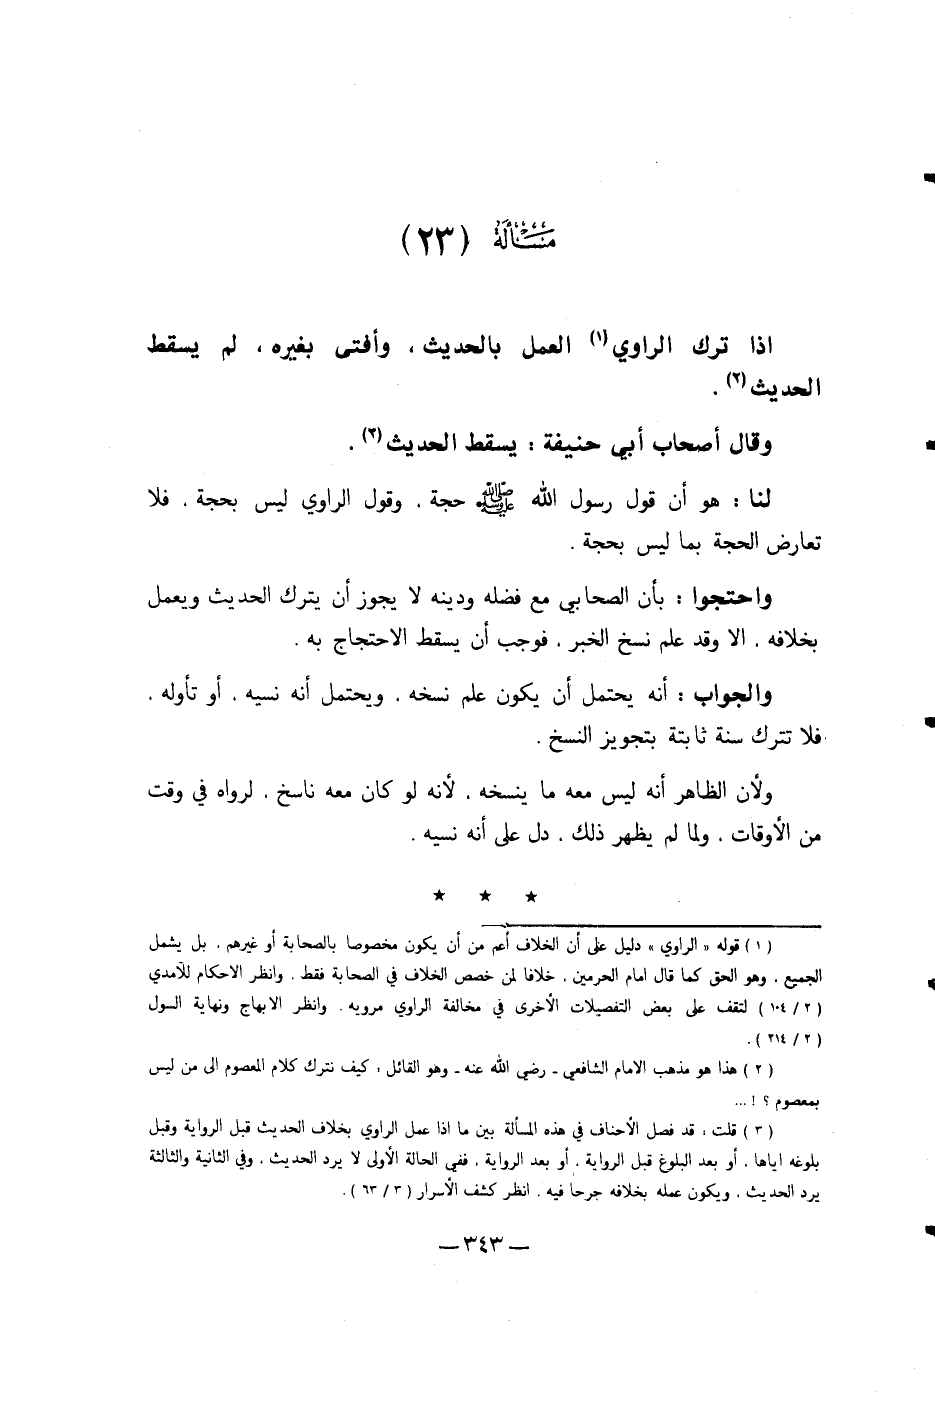 مسألة (٢٣)
اذا ترك الراوي(١) العمل بالحديث ، وأفتى بغيره ، لم يسقط
الحديث(٢) .
وقال أصحاب أبي حنيفة : يسقط الحديث(٣) .
لنا : هو أن قول رسول الله ﷺ حجة ، وقول الراوي ليس بحجة ، فلا
تعارض الحجة بما ليس بحجة .
واحتجوا : بأن الصحابي مع فضله ودينه لا يجوز أن يترك الحديث ويعمل
بخلافه ، الا وقد علم نسخ الخبر ، فوجب أن يسقط الاحتجاج به .
والجواب : أنه يحتمل أن يكون علم نسخه ، ويحتمل أنه نسيه ، أو تأوله ،
فلا تترك سنة ثابتة بتجويز النسخ .
ولأن الظاهر أنه ليس معه ما ينسخه ، لأنه لو كان معه ناسخ ، لرواه في وقت
من الأوقات ، ولما لم يظهر ذلك ، دل على أنه نسيه .
★ ★ ★
(١) قوله « الراوي » دليل على أن الخلاف أعم من أن يكون مخصوصا بالصحابة أو غيرهم ، بل يشمل
الجميع ، وهو الحق كما قال امام الحرمين ، خلافا لمن خصص الخلاف في الصحابة فقط ، وانظر الاحكام للآمدي
(٢ / ١٠٤) لتقف على بعض التفصيلات الأخرى في مخالفة الراوي مرويه . وانظر الابهاج ونهاية السول
(٢ / ٢١٤) .
(٢) هذا هو مذهب الامام الشافعي ـ رضي الله عنه ـ وهو القائل : كيف نترك كلام المعصوم الى من ليس
بمعصوم ؟ ! ...
(٣) قلت : قد فصل الأحناف في هذه المسألة بين ما اذا عمل الراوي بخلاف الحديث قبل الرواية وقبل
بلوغه اياها ، أو بعد البلوغ قبل الرواية ، أو بعد الرواية ، ففي الحالة الأولى لا يرد الحديث ، وفي الثانية والثالثة
يرد الحديث ، ويكون عمله بخلافه جرحا فيه . انظر كشف الأسرار (٣ / ٦٣) .
— ٣٤٣ —